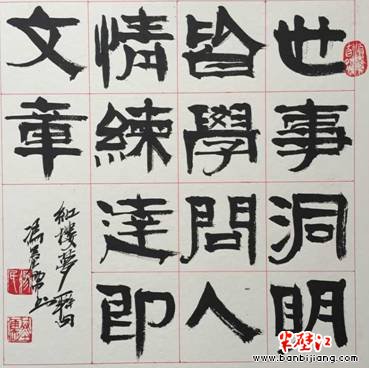 世事洞明
皆學問人
情練達即
文章
紅樓夢
馮
半壁江
www.banbijiang.com